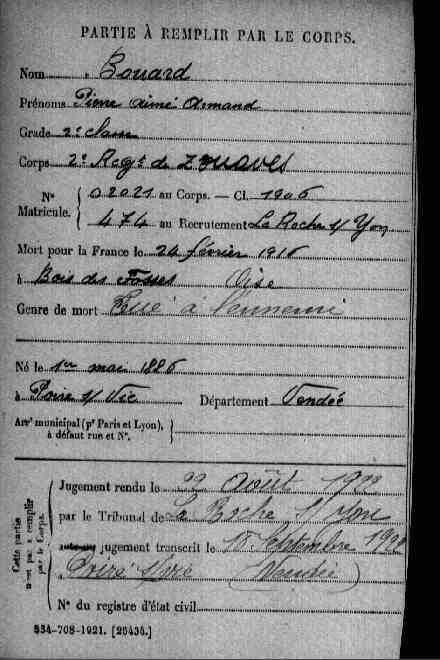 PARTIE À REMPLIR PAR LE CORPS.
Nom Bouard
Prénoms Pierre Aimé Armand
Grade 2e classe
Corps 2e Regt de ZOUAVES
N° Matricule. 02021 au Corps. — Cl. 1906
474 au Recrutement La Roche s/ Yon
Mort pour la France le 24 février 1916
à Bois des Fosses Oise
Genre de mort Tué à l'ennemi
Né le 1er mai 1886
à Poiré s/ Vie Département Vendée
Arrt municipal (pr Paris et Lyon), à défaut rue et N°.
Cette partie n'est pas à remplir par le Corps.
Jugement rendu le Août
par le Tribunal de La Roche s/ Yon
jugement transcrit le Septembre
Poiré s/Vie (Vendée)
N° du registre d'état civil
534-708-1921. [26434.]